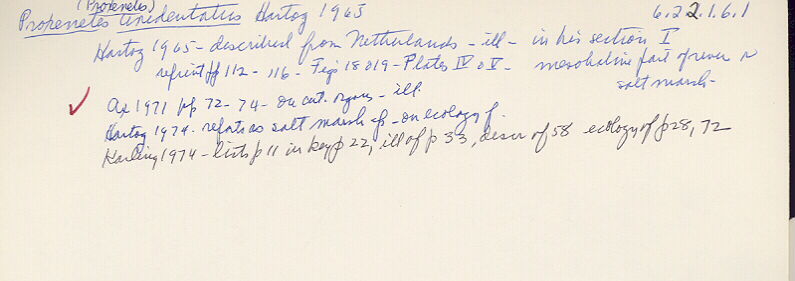 (Proxenetes)
Proxenetes unidentatus Hartog 1965 6.22.1.6.1
Hartog 1965 - described from Netherlands - ill - in his section I
reprint pp 112 - 116 - Figs 18 & 19 - Plates IV & V - mesohaline part of river &
salt marsh -
Ax 1971 pp 72 - 74 - on cut. organs - ill.
Hartog 1974 - refers as salt marsh sp - on ecology of.
Karling 1974 - lists p 11 in key p 22, ill of p 33, descr of 58 ecology of p 28, 72